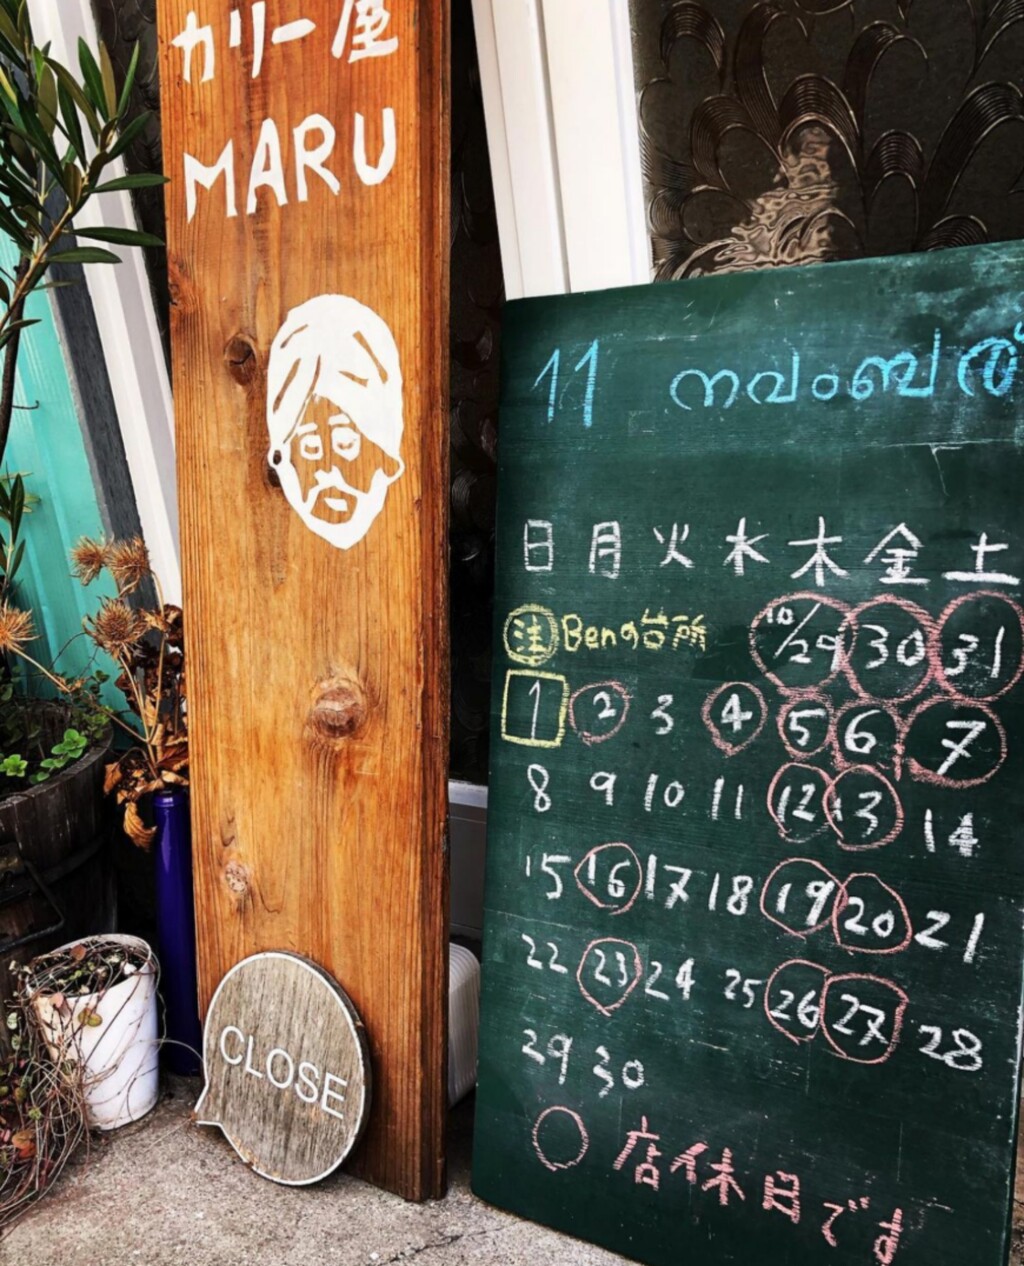 カリー屋
MARU
CLOSE
11 നവംബർ
日 月 火 水 木 金 土
注 Bengの台所 10/29 30 31
1 2 3 4 5 6 7
8 9 10 11 12 13 14
15 16 17 18 19 20 21
22 23 24 25 26 27 28
29 30
店休日です